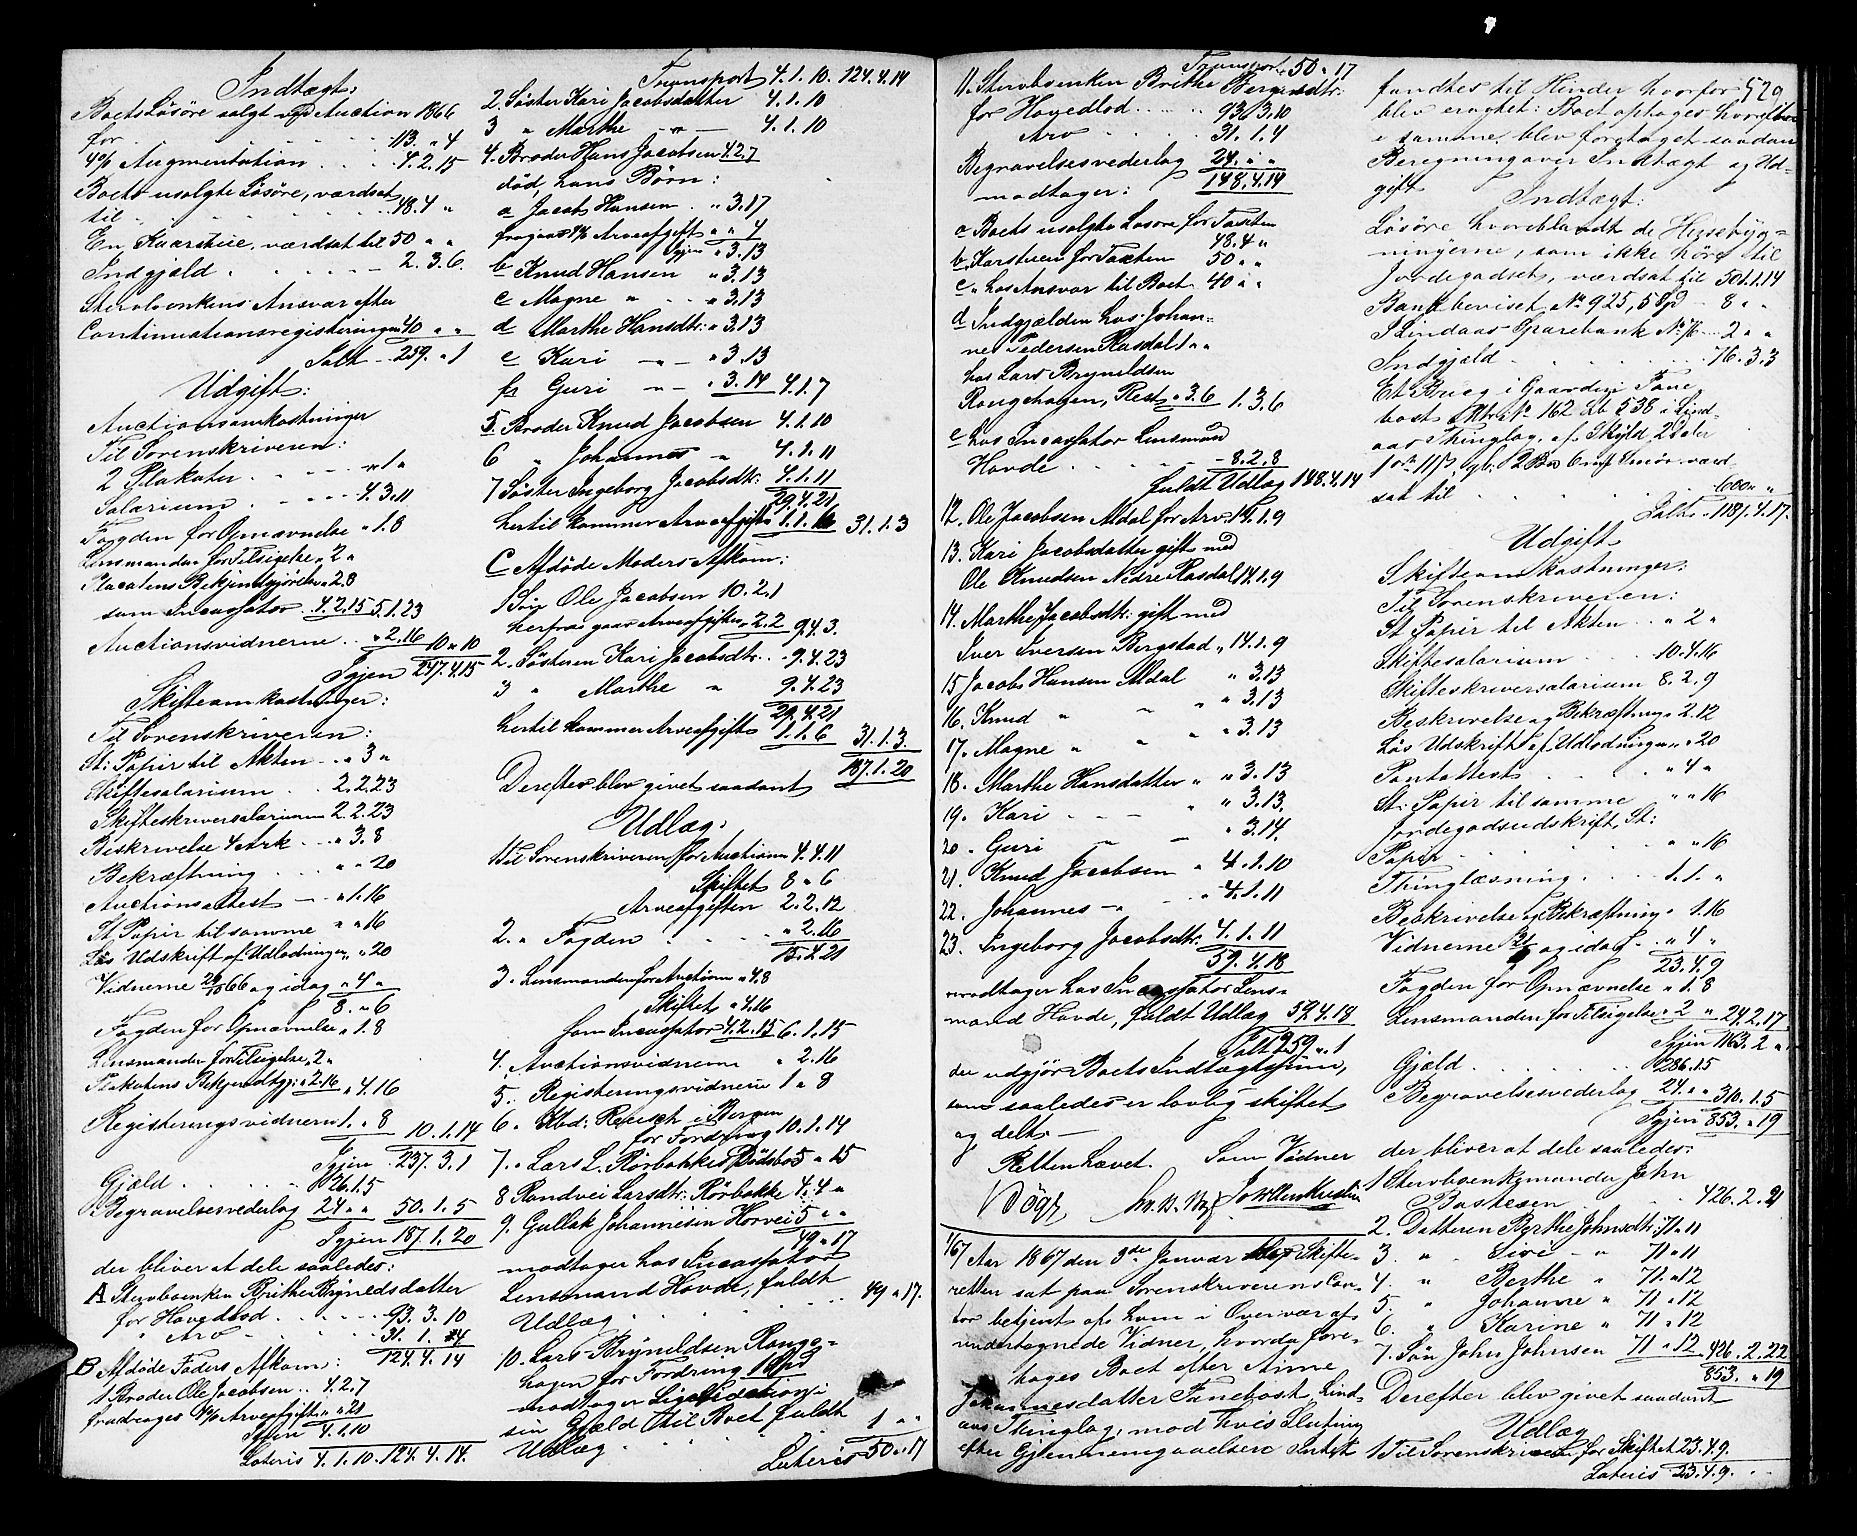 Indtægt:
Boets Løsøre solgt ved Auction 1866
for . . . 113. " 4
4% Augmentation . . . 4.2.15
Boets usolgte Løsøre, værdsat
til . . . . . 48.4 "
En Kaarstue, værdsat til 50 " "
Indgjæld . . . . . 2.3.6.
Stervboenkens Ansvar efter
Continuationsregisteringen 40 " "
Salt . 259. " 1
Udgift:
Auctionsomkostninger
Til Sorenskriveren:
2 Plakater . . . " 1 "
Salarium . . . 4.3.11
Fogden for Opnævnelse " 1.8
Lensmanden for Tilsigelse " 2 "
Placatens Bekjendtgjørelse " 2.8
som Incassator 4.2.15 5.1.23
Auctionsvidnerne . . " 2.16 10 " 10
Igjen 247.4.15
Skifteomkostninger:
Til Sorenskriveren:
St: Papir til Akten . . " 3 "
Skiftesalarium . . 2.2.23
Skifteskriversalarium 2.2.23
Beskrivelse 4 Ark . . " 3.8
Bekræftning . . . " " 20
Auctionsattest . . " 1.16
St Papir til samme " " 16
Løs Udskrift af Udlodningen " " 20
Vidnerne 29/10 66 og idag " 4 "
8. " 6
Fogden for Opnævnelse " 1.8
Lensmanden for Tilsigelse " 2 "
Plakatens Bekjendtgj: " 2.16 " 4.16
Registeringsvidnerne 1. " 8 10.1.14
Igjen . 237.3.1
Gjæld . . . . . 26.1.5
Begravelsesvederlag 24 " " 50.1.5
Igjen 187.1.20
der bliver at dele saaledes:
A Stervboenken Brithe Brynildsdatter
for Hovedlod . . . . 93.3.10
" Arv . . . . . 31.1.4
124.4.14
B Afdøde Faders Afkom:
1 Broder Ole Jacobsen . . 4.2.7
fradrages 4% Arveafgift " " 21
Igjen 4.1.10
Lateris 4.1.10. 124.4.14.
Transport 4.1.10. 124.4.14
2. Søster Kari Jacobsdatter 4.1.10
3 " Marthe — " — 4.1.10
4. Broder Hans Jacobsen 4.2.7
død, hans Børn:
a Jacob Hansen . . " 3.17
fragaar 4% Arveafgift " " 4
Igjen " 3.13
b Knud Hansen " 3.13
c Magne " . . " 3.13
d Marthe Hansdtr: " 3.13
e Kari — " — " 3.13
f Guri " — " 3.14 4.1.7
5. Broder Knud Jacobsen 4.1.10
6 " Johannes " 4.1.11
7 Søster Ingeborg Jacobsdtr: 4.1.11
29.4.21
hertil kommer Arveafgift 1.1.6 31.1.3
C Afdøde Moders Afkom:
1 Søn Ole Jacobsen 10.2.1
herfra gaar Arveafgiften " 2.2 9.4.3.
2. Søsteren Kari Jacobsdtr . . 9.4.23
3 " Marthe " 9.4.23
29.4.21
hertil kommer Arveafgift 1.1.6 31.1.3.
187.1.20
Derefter blev givet saadant
Udlæg:
1 Til Sorenskriveren for Auctionen 4.4.11
Skiftet 8 " 6
Arveafgiften 2.2.12
2. " Fogden . . . " 2.16
15.4.21
3. Lensmanden for Auctionen " 4.8
Skiftet " 4.16
som Incassator 4.2.15 6.1.15
4. Auctionsvidnerne " 2.16
5. Registeringsvidnerne 1 " 8
6. Abd: Reusch i Bergen
for Fordring 10.1.14
7. " Lars L. Rørbakke Dødsbo 5 " 15
8 Randvei Larsdtr: Rørbakke 4.4 "
9. Gullak Johannesen Horvei 5 " "
49 " 17
modtager hos Incassator
Lensmand Hovde, fuldt
Udlæg . . . . . 49 " 17.
10. Lars Brynildsen Ronge-
hagen for Fordring 1 Spd
modtager Ligqvidation i
sin Gjæld til Boet fuldt
Udlæg . . . . . 1 " "
Lateris 50 " 17
Transport 50 " 17
11. Stervboenken Brithe Brynildsdtr:
for Hovedlod . . . . 93.3.10
Arv . . . . 31.1.4
Begravelsesvederlag 24. " "
148.4.14
modtager:
a Boets usolgte Løsøre for Taxten
48.4 "
b Karstuen for Taxten 50 " "
c " hos Ansvar til Boet 40 " "
d Indgjælden hos Johan-
nes Pedersen Rasdal 1 " "
hos Lars Brynildsen
Rongehagen, Rest " 3.6 1.3.6
e hos Incassator Lensmand
Hovde . . . . . 8.2.8
fuldt Udlæg 148.4.14
12. Ole Jacobsen Aldal for Arv 14.1.9
13. Kari Jacobsdatter gift med
Ole Knudsen Nedre Rasdal 14.1.9
14. Marthe Jacobsdtr: gift med
Iver Iversen Bergstad " 14.1.9
15 Jacob Hansen Aldal " 3.13
16. Knud " " " " 3.13
17. Magne " " " " 3.13
18. Marthe Hansdatter " " 3.13
19. Kari . . . " " 3.13.
20. Guri — — " 3.14.
21. Knud Jacobsen " 4.1.10
22. Johannes — " . " 4.1.11
23. Ingeborg Jacobsdtr: 4.1.11
59.4.18
modtager hos Incassator Lens-
mand Hovde, fuldt Udlæg 59.4.18
Salt 259 " 1
der udgjør Boets Indtægtssum,
som saaledes er lovlig skiftet
og delt. —
Retten hævet. Som Vidner
1/67 Aar 1867 den 3de Januar blev Skifte-
retten sat paa Sorenskriverens Con-
tor betjent af ham i Overvær af
undertegnede Vidner, hvorda fore-
toges Boet efter Anne
Johannesdatter Fanebost, Lind-
aas Thinglag, mod hvis Slutning
efter Gjennemgaaelsen Intet
529
fandtes til Hinder hvorfor
blev eragtet: Boet optages hvorefter
i samme blev foretaget saadan
Beregning over Indtægt og Ud-
gift
Indtægt:
Løsøre hvoriblandt de Husebyg-
ningerne, som ikke høre til
Jordegodset, værdsat til 501.1.14
Bankbeviset No 925, 5 Spd — 8 " "
I Lindaas Sparebank No 76 . . 2 " "
Indgjæld . . . . . 76.3.3
Et Brug i Gaarden Fane-
bost Mtr: No 162 Lb 538 i Lind-
aas Thinglag, af Skyld 2 Daler
1 ort 11 s, gl: 2 Bpd 6 mk Smør værd-
sat til . . . . . 600 " "
Salt . 1187.4.17.
Udgift
Skifteomkostninger:
Til Sorenskriveren:
St Papir til Akten . . " 2 "
Skiftesalarium . . . 10.4.16
Skifteskriversalarium 8.2.9
Beskrivelse og Bekræftning " 2.12
Løs Udskrift af Udlodningen " " 20
Pantattest . . . . " 4 "
St: Papir til samme " " 16
Jordegodsudskrift, St:
Papir . . . . . " " 16
Thinglæsning . . . . 1.1. "
Beskrivelse og Bekræftning " 1.16
Vidnerne og idag . . " 4 "
23.4.9
Fogden for Opnævnelse " 1.8
Lensmanden for Tilsigelse " 2 " 24.2.17
Igjen 1163.2 "
Gjæld . . . . . 286.1.5
Begravelsesvederlag 24. " " 310.1.5
Igjen 853. " 19
der bliver at dele saaledes:
1 Stervboenkemanden John
Bastesen . . . . . 426.2.21
2. Datteren Byrthe Johnsdtr: 71 " 11
3. " Sivi — " 71 " 11
4. " Berthe " 71. " 12
5. " Johanne " 71 " 12
6. " Karine " 71 " 12
7. Søn John Johnsen 71 " 12 426.2.22
853. " 19
Derefter blev givet saadant
Udlæg
1 Til Sorenskriveren for Skiftet 23.4.9.
Lateris 23.4.9.